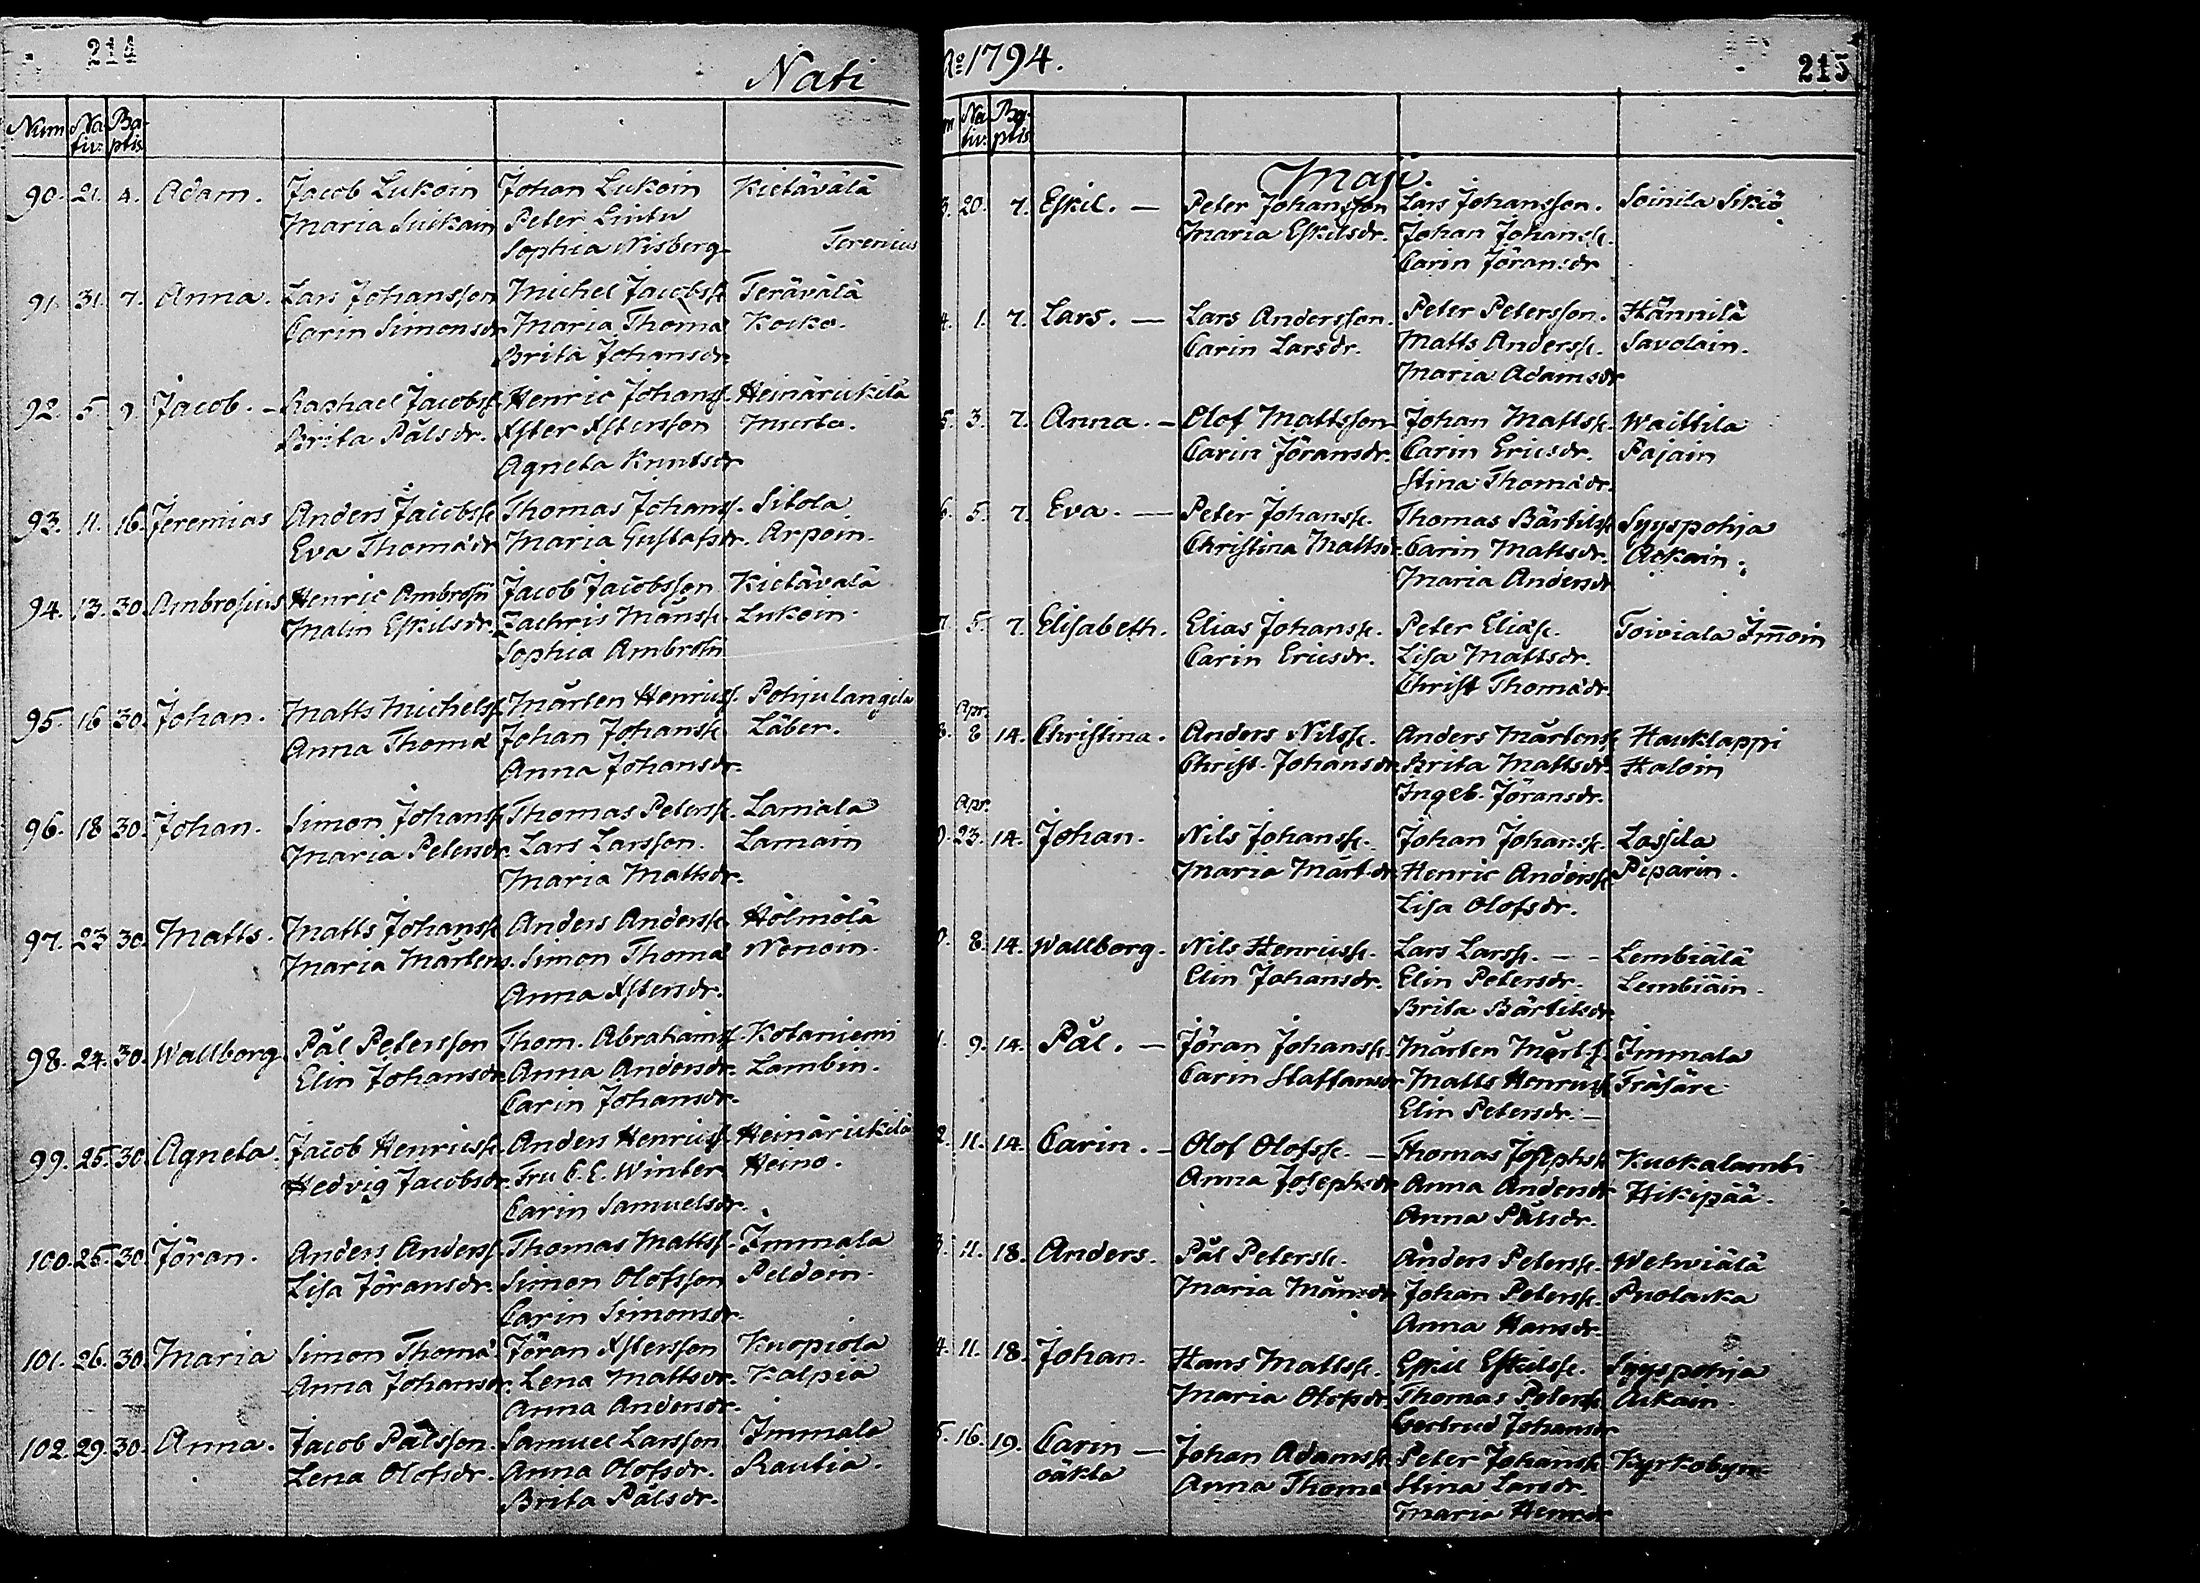 214
Nati
Num Na- Ba-
tiv: ptis
90. 21. 4. Adam. Jacob Lukoin Johan Lukoin Kietävälä
Maria Suikain Peter Lintu
Sophia Nisberg Terenius
91. 31. 7. Anna. Lars Johansson Michel Jacobss. Terävälä
Carin Simonsdr. Maria Thomæ Kocko.
Brita Johansdr.
92. 5. 9. Jacob. – Raphael Jacobss. Henric Johanss. Heinärickilä
Brita Pålsdr. Ester Estersson Murto.
Agneta Knutsdr
93. 11. 16. Jeremias Anders Jacobss. Thomas Johanss. Sitola
Eva Thomædr. Maria Gustafsdr. Arpoin.
94. 13. 30. Ambrosius Henric Ambrosii Jacob Jacobsson Kietävälä
Malin Eskilsdr. Zachris Månss. Lukoin.
Sophia Ambrosii
95. 16. 30. Johan. Matts Michelss. Mårten Henricss. Pohjulangila
Anna Thomæ Johan Johanss. Läber.
Anna Johansdr.
96. 18. 30. Johan. Simon Johanss. Thomas Peterss. Lamala
Maria Petersdr. Lars Larsson. Lamain
Maria Mattsdr.
97. 23. 30. Matts. Matts Johanss. Anders Anderss. Hölmölä
Maria Mårtens. Simon Thomæ Nenoin.
Anna Estersdr.
98. 24. 30. Wallborg. Pål Petersson Thom. Abrahamss. Kotaniemi
Elin Johansdr. Anna Andersdr. Lambin.
Carin Johansdr.
99. 25. 30. Agneta. Jacob Henricss. Anders Henricss. Heinärickilä
Hedvig Jacobsdr. Fru C. E. Winter Heino.
Carin Samuelsdr.
100. 25. 30. Jöran. Anders Anderss. Thomas Mattss. Immala
Lisa Jöransdr. Simon Olofsson Peldoin.
Carin Simonsdr.
101. 26. 30. Maria Simon Thomæ Jöran Estersson Kuopiola
Anna Johansdr. Lena Mattsdr. Kalpia
Anna Andersdr.
102. 29. 30. Anna. Jacob Pålsson. Samuel Larsson Immala
Lena Olofsdr. Anna Olofsdr. Rautia.
Brita Pålsdr.
Aº 1794.
215
m Na- Ba-
tiv: ptis
Maji.
3. 20. 7. Eskil. – Peter Johansson Lars Johansson. Soinila Sikiö
Maria Eskilsdr. Johan Johanss.
Carin Jöransdr
4. 1. 7. Lars. – Lars Andersson. Peter Petersson. Hännilä
Carin Larsdr. Matts Anderss. Savolain.
Maria Adamsdr
5. 3. 7. Anna. – Olof Mattsson Johan Mattss. Waittila
Carin Jöransdr. Carin Ericsdr. Pajain
Stina Thomædr.
6. 5. 7. Eva. – Peter Johanss. Thomas Bärtilss. Syyspohja
Christina Mattsdr. Carin Mattsdr. Ackain.
Maria Andersdr
7. 5. 7. Elisabeth. Elias Johanss. Peter Eliæss. Toiviala Im̄oin
Carin Ericsdr. Lisa Mattsdr.
Christ Thomædr.
Apr.
8. 8 14. Christina. Anders Nilss. Anders Mårtenss. Hauklappi
Christ. Johansdr. Brita Mattsdr. Haloin
Ingeb. Jöransdr.
Apr.
9. 23. 14. Johan. Nils Johanss. Johan Johanss. Lassila
Maria Mårt.dr. Henric Anderss. Piparin.
Lisa Olofsdr.
0. 8. 14. Wallborg. Nils Henricss. Lars Larss. – – Lembiälä
Elin Johansdr. Elin Petersdr. Lembiäin.
Brita Bärtilsdr
1. 9. 14. Pål. – Jöran Johanss. Mårten Mårt.s. Immala
Carin Staffansdr. Matts Henricss. Träsäre
Elin Petersdr. –
2. 11. 14. Carin. – Olof Olofss. – Thomas Josephss. Kuokalambi
Anna Josephsdr Anna Andersdr Hikipää.
Anna Pålsdr.
3. 11. 18. Anders. Pål Peterss. Anders Peterss. Wehwiälä
Maria Månsdr Johan Peterss. Puolacka
Anna Hansdr.
4. 11. 18. Johan. Hans Mattss. Eskil Eskilss. Syyspohja
Maria Olofsdr. Thomas Peterss. Ackain.
Gertrud Johansdr
5. 16. 19. Carin – Johan Adamss. Peter Johanss. Kyrkobyn
oäkta Anna Thomæ Stina Larsdr.
Maria Henr.dr